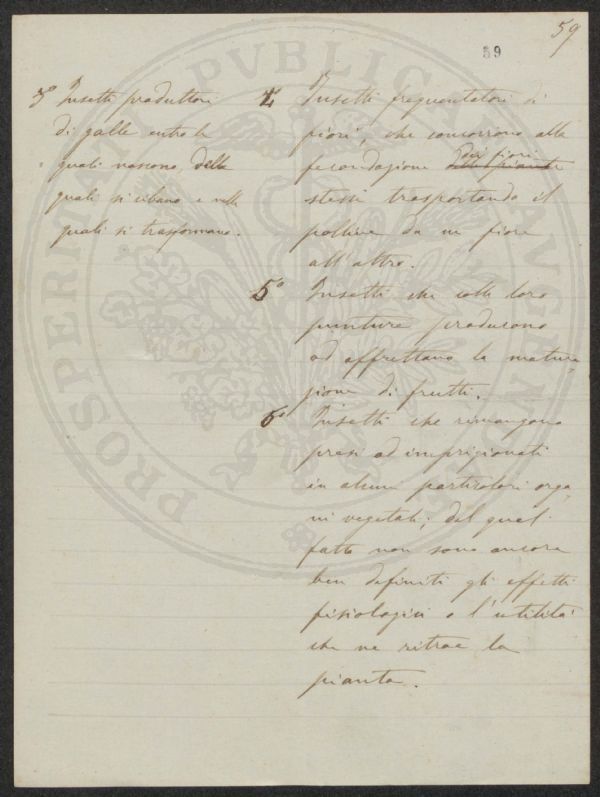 59
59
3° Insetti produttori
di galle entro le
quali nascono, delle
quali si cibano e nelle
quali si trasformano.
4° Insetti frequentatori di
fiori, che concorrono alla
fecondazione delle piante dei fiori
stessi trasportando il
polline da un fiore
all'altro.
5° Insetti che colle loro
punture producono
od affrettano la matura
zione di frutti.
6° Insetti che rimangono
presi ed imprigionati
in alcuni particolari orga
ni vegetali; del qual
fatto non sono ancora
ben definiti gli effetti
fisiologici e l'utilità
che ne ritrae la
pianta.
PROSPERITATI PUBLICAE AUGENDAE